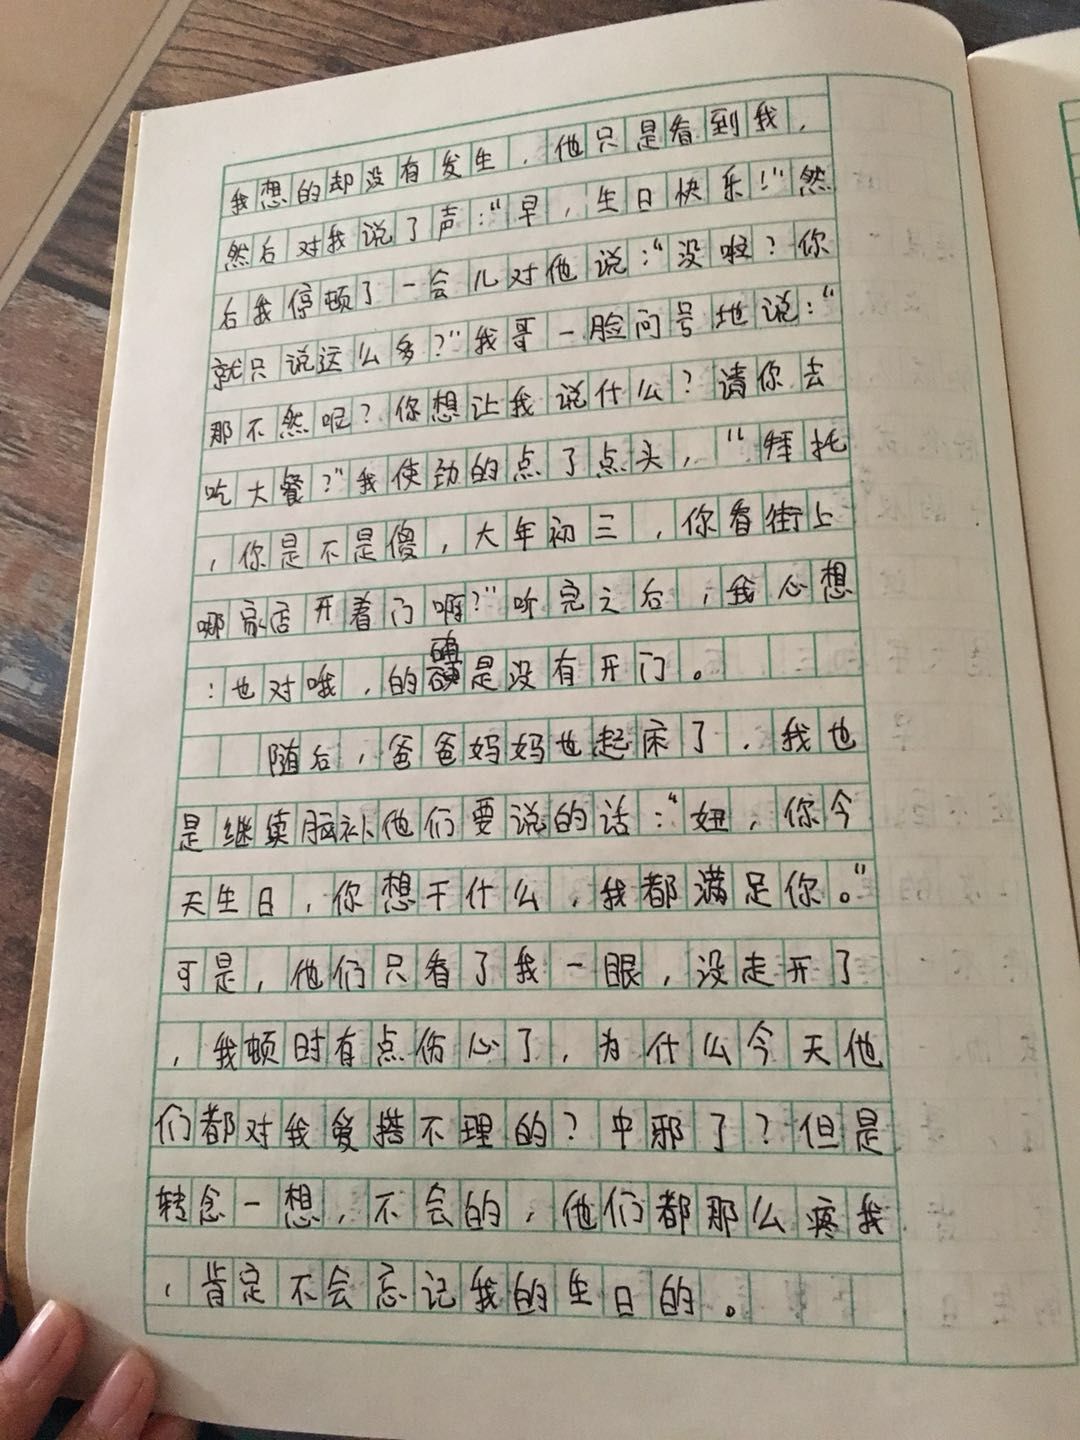 我想的却没有发生，他只是看到我，
然后对我说了声：“早，生日快乐！”然
后我停顿了一会儿对他说：“没啦？你
就只说这么多？”我哥一脸问号地说：“
那不然呢？你想让我说什么？请你去
吃大餐？”我使劲的点了点头，“拜托
，你是不是傻，大年初三，你看街上
哪家店开着门啊？”听完之后，我心想
：也对哦，的确是没有开门。
随后，爸爸妈妈也起床了，我也
是继续脑补他们要说的话：“妞，你今
天生日，你想干什么，我都满足你。”
可是，他们只看了我一眼，没走开了
，我顿时有点伤心了，为什么今天他
们都对我爱搭不理的？中邪了？但是
转念一想，不会的，他们都那么疼我
，肯定不会忘记我的生日的。